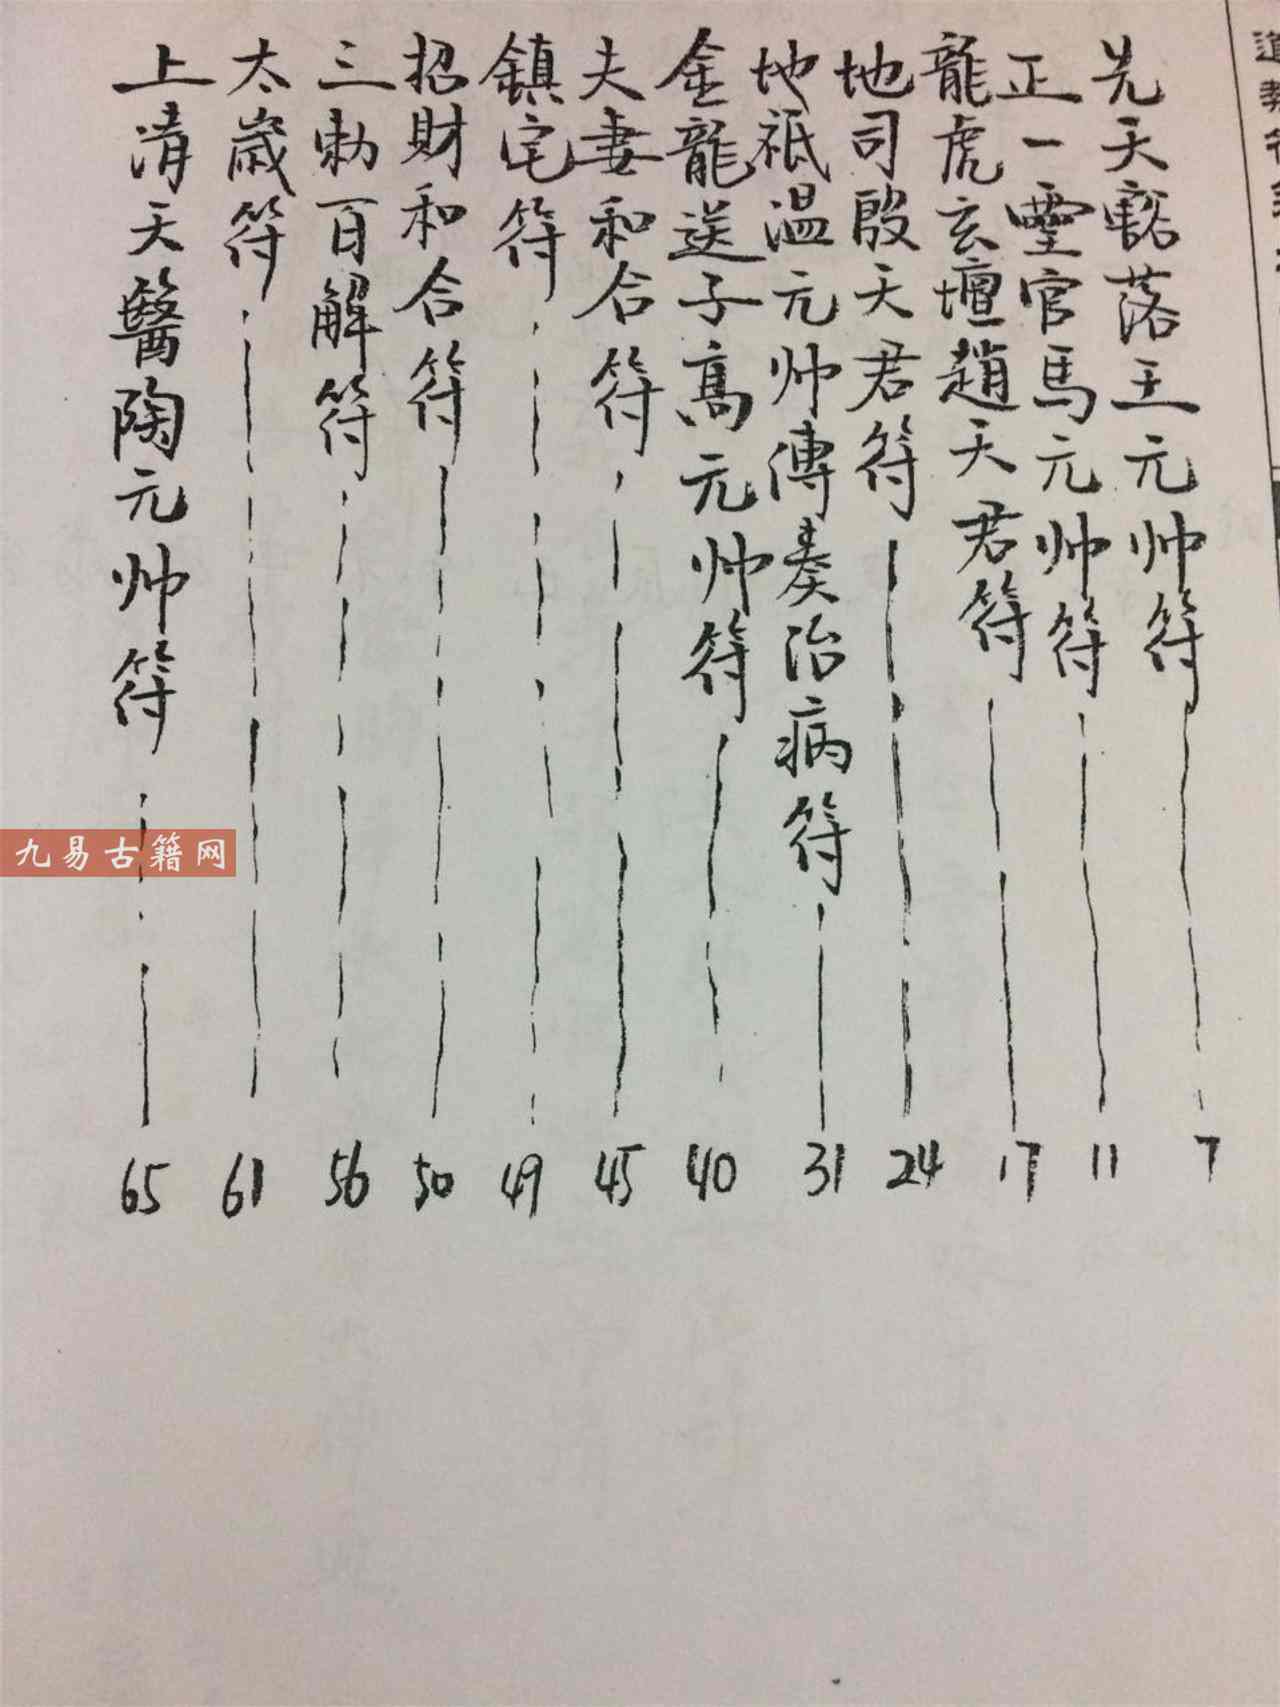 先天豁落王元帅符 7
正一靈官馬元帅符 11
龍虎玄壇趙天君符 17
地司殷天君符 24
地祇温元帅傳奏治病符 31
金龍送子高元帅符 40
夫妻和合符 45
鎮宅符 49
招財和合符 50
三勅百解符 56
太歲符 61
上清天醫陶元帅符 65
九易古籍网